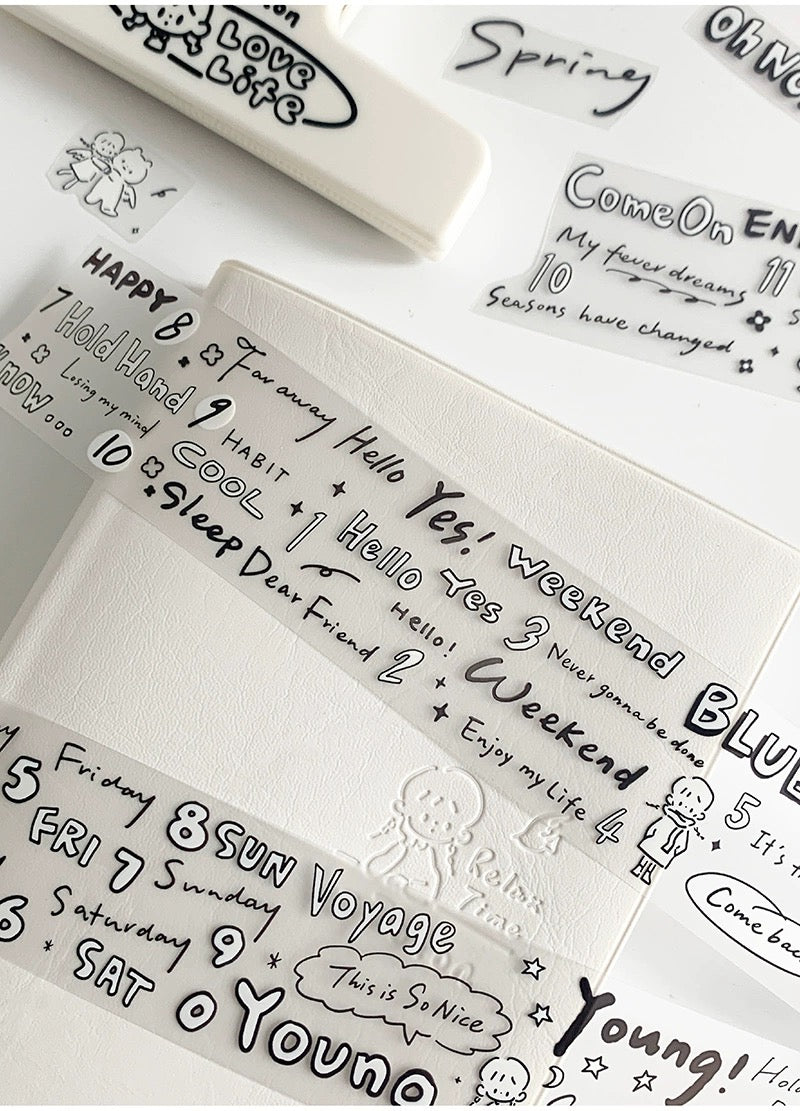 Love
Life
Spring
Oh No
Come On
My fever dreams
10
11
Seasons have changed
HAPPY 8
7 Hold Hand 9
Losing my mind
now... 10
Far away Hello Yes! Weekend BLUE
HABIT
COOL 1 Hello Yes 3 Never gonna be done
Sleep Dear Friend 2
Hello! Weekend
Enjoy my Life 4
5 It's
Come back
Relax
Time
5 Friday 8 SUN Voyage
FRI 7 Sunday
6 Saturday 9 This is So Nice
SAT 0 Young
Young!